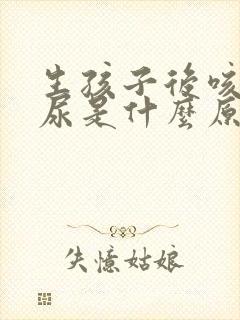 生孩子後咳
尿是什麼原
失憶姑娘